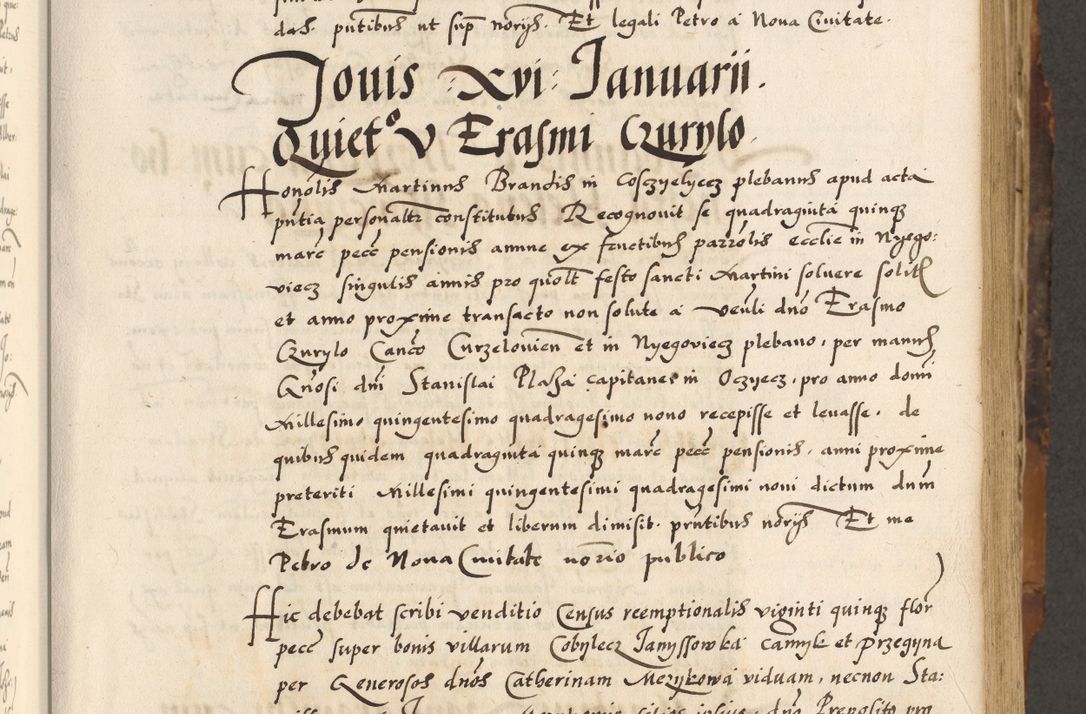 das. pñtibus ut sup noriis. Et legali Petro a Nova Civitate.
Jovis xvi Januarii.
Quieto v Erasmi Gurylo.
Honolis Martinus Brandis in Coszyelyecz plebanus apud acta
pñtia personaltr constitutus Recognovit se quadraginta quinqз
marc pecc pensionis annue ex fructibus parrolis ecclie in Nyego:
viecz singulis annis pro quolt festo sancti Martini solvere solitę
et anno proxime transacto non solute a venli dno Erasmo
Gurylo Canco Curzelovien et in Nyegoviecz plebano, per manus
Gnosi dni Stanislai Plaza capitanei in Oczyecz, pro anno domi
Millesimo quingentesimo quadragesimo nono recepisse et levasse, de
quibus quidem quadraginta quinqз marc pecc pensionis, anni proxime
preteriti Millesimi quingentesimi quadragesimi noni dictum dnm
Erasmum quietavit et liberum dimisit. pñtibus noriis Et me
Petro de Nova Civitate norio publico
Hic debebat scribi venditio Census reemptionalis viginti quinqз flor
pecc super bonis villarum Cobylecz Janyssowka Camyk et Przegyna
per Generosos dnos Catherinam Mezykowa viduam, necnon Sta:
filios ipsius, dno Preposito pro